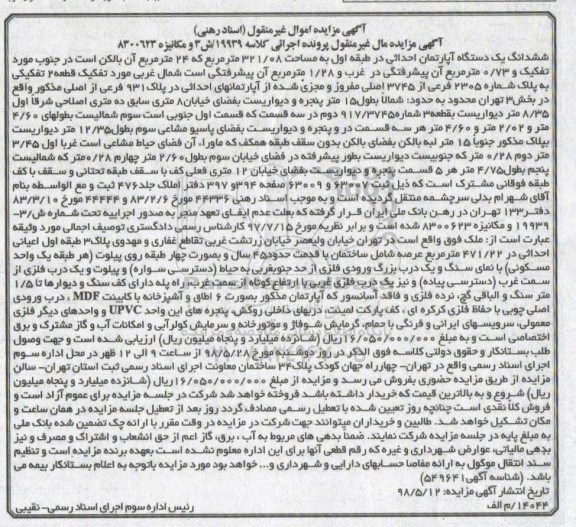 آگهی مزایده اموال غیرمنقول (اسناد رهنی)
آگهی مزایده مال غیرمنقول پرونده اجرائی کلاسه ۱۹۹۳۹/ش۳ و مکانیزه ۸۳۰۰۶۲۳
ششدانگ یک دستگاه آپارتمان احداثی در طبقه اول به مساحت ۳۲۱/۰۸ مترمربع که ۲۴ مترمربع آن بالکن است در جنوب مورد
تفکیک و ۰/۷۳ مترمربع آن پیشرفتگی در غرب و ۱/۲۸ مترمربع آن پیشرفتگی است شمال غربی مورد تفکیک قطعه۲ تفکیکی
به پلاک شماره ۲۳۰۵ فرعی از ۳۷۴۵ اصلی مفروز و مجزی شده از آپارتمانهای احداثی در پلاک۹۳۱ فرعی از اصلی مذکور واقع
در بخش۳ تهران محدود به حدود: شمالاً بطول۱۵ متر پنجره و دیواریست بفضای خیابان۸ متری سابق ده متری اصلاحی شرقا اول
۸/۳۵ متر دیواریست بقطعه۳ شماره۹۱۷/۳۷۴۵ دوم در سه قسمت که قسمت اول جنوبی است سوم شمالیست بطولهای ۴/۶۰
متر و ۲/۰۲ متر و ۴/۶۰ متر هر سه قسمت در و پنجره و دیواریست بفضای پاسیو مشاعی سوم بطول۱۲/۳۵ متر دیواریست
بپلاک مذکور جنوباً ۱۵ متر لبه بالکن بفضای بالکن بدون سقف طبقه همکف که ماوراء آن فضای حیاط مشاعی است غربا اول ۳/۴۵
متر دوم ۰/۲۸ متر که جنوبیست دیواریست بطور پیشرفته در فضای خیابان سوم بطول۲/۶۰ متر چهارم ۰/۲۸متر که شمالیست
پنجم بطول۴/۷۵ متر هر ۵ قسمت پنجره و دیواریست بفضای خیابان ۱۲ متری فعلی کف با سقف طبقه تحتانی و سقف با کف
طبقه فوقانی مشترک است که ذیل ثبت ۶۳۰۰۷ و ۶۳۰۰۹ صفحه ۳۹۴و ۳۹۷ دفتر املاک جلد۴۷۶ ثبت و مع الواسطه بنام
آقای شهرام بدلی سرچشمه منتقل گردیده است و به موجب اسناد رهنی ۴۴۳۳۶ مورخ ۸۳/۲/۶ و ۴۴۴۴۴ مورخ ۸۳/۳/۱۰
دفتر۱۳۳ تهران در رهن بانک ملی ایران قرار گرفته که بعلت عدم ایفای تعهد منجر به صدور اجراییه تحت شماره ش/۳-
۱۹۹۳۹ و مکانیزه ۸۳۰۰۶۲۳ شده است و برابر نظریه مورخ ۹۷/۷/۱۵ کارشناس رسمی دادگستری توصیف اجمالی مورد وثیقه
عبارت است از: ملک فوق واقع است در تهران خیابان ولیعصر خیابان زرتشت غربی تقاطع غفاری و مهدوی پلاک۳ طبقه اول اعیانی
احداثی در ۴۷۱/۲۲ مترمربع عرصه شامل ساختمان با قدمت حدود۴۵ سال و بصورت چهار طبقه روی پیلوت (هر طبقه یک واحد
مسکونی) با نمای سنگ و یک درب بزرگ ورودی فلزی از حد جنوبغربی به حیاط (دسترسی سواره) و پیلوت و یک درب فلزی از
سمت غرب (دسترسی پیاده) و نیز یک درب فلزی غربی با ارتفاع کوتاه از سمت غرب، راه پله دارای کف سنگ و دیوارها تا ۱/۵
متر سنگ و الباقی گچ، نرده فلزی و فاقد آسانسور که آپارتمان مذکور بصورت ۶ اطاق و آشپزخانه با کابینت MDF ، درب ورودی
اصلی چوبی با حفاظ فلزی کرکره ای ، کف پارکت لمینت، دربهای داخلی روکش، پنجره های این واحد UPVC و واحدهای دیگر فلزی
معمولی، سرویسهای ایرانی و فرنگی با حمام، گرمایش شوفاژ و موتورخانه و سرمایش کولرآبی و امکانات آب و گاز مشترک و برق
اختصاصی است و به مبلغ ۱۶/۰۵۰/۰۰۰/۰۰۰ریال (شانزده میلیارد و پنجاه میلیون ریال) ارزیابی شده است و جهت وصول
طلب بستانکار و حقوق دولتی کلاسه فوق الذکر در روز دوشنبه مورخ ۹۸/۵/۲۸ از ساعت ۹ الی ۱۲ ظهر در محل اداره سوم
اجرای اسناد رسمی واقع در تهران- چهارراه جهان کودک پلاک۳۴ ساختمان معاونت اجرای اسناد رسمی ثبت استان تهران- سالن
مزایده از طریق مزایده حضوری بفروش می رسد و مزایده از مبلغ ۱۶/۰۵۰/۰۰۰/۰۰۰ریال (شانزده میلیارد و پنجاه میلیون
ریال) شروع و به بالاترین قیمت که خریدار داشته باشد فروخته خواهد شد شرکت در جلسه مزایده برای عموم آزاد است و
فروش کلاً نقدی است چنانچه روز تعیین شده با تعطیل رسمی مصادف گردد روز بعد از تعطیل جلسه مزایده در همان ساعت و
مکان تشکیل خواهد شد. طالبین و خریداران میتوانند جهت شرکت در مزایده در وقت مقرر با ارائه چک تضمین شده بانک ملی
به مبلغ پایه در جلسه مزایده شرکت نمایند. ضمنا بدهی های مربوط به آب ، برق، گاز اعم از حق انشعاب و اشتراک و مصرف و نیز
بدهی مالیاتی، عوارض شهرداری و غیره که رقم قطعی آنها برای این اداره معلوم نشده است بعهده برنده مزایده است و تنظیم
سند انتقال موکول به ارائه مفاصا حسابهای دارایی و شهرداری و... خواهد بود مورد مزایده باتوجه به اعلام بستانکار بیمه می
باشد. (شناسه آگهی۵۴۹۶۴۱)
تاریخ انتشار آگهی مزایده: ۹۸/۵/۱۲
۱۴۰۴۴/م الف
رئیس اداره سوم اجرای اسناد رسمی- نقیبی